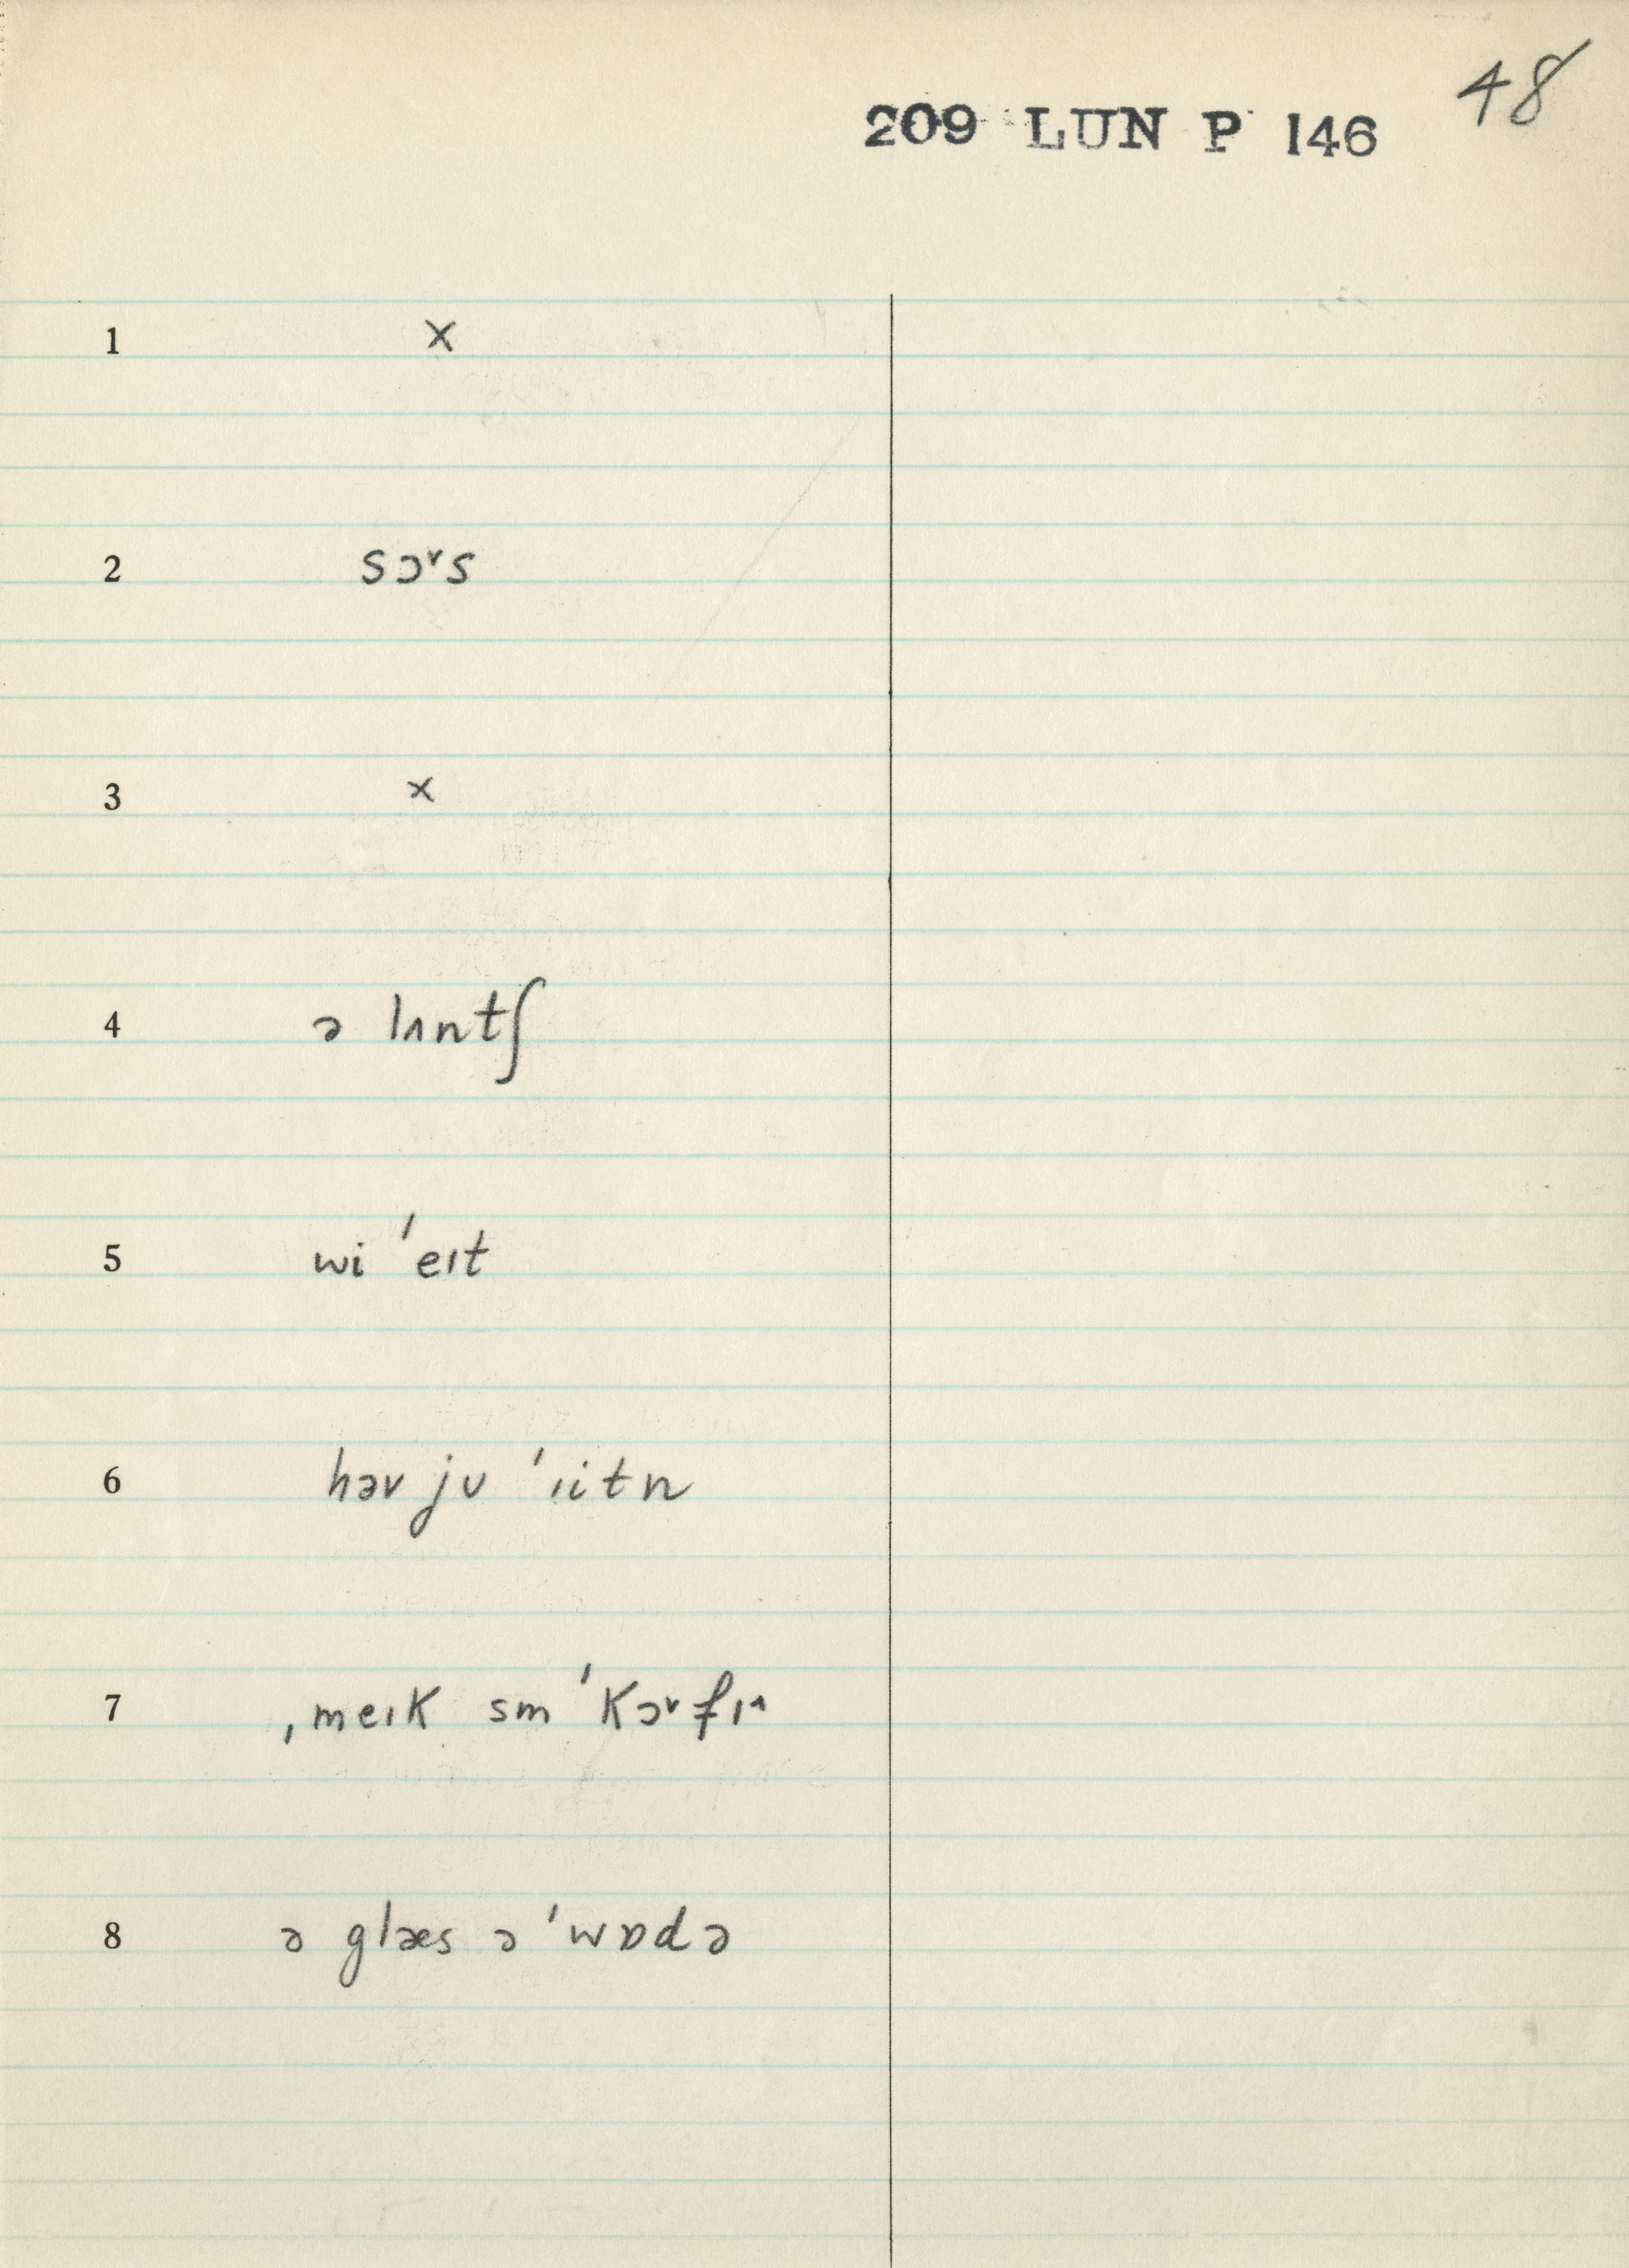 48
209 LUN P 146
1 x
2 sɔᵛs
3 x
4 ə lʌntʃ
5 wi ˈeɪt
6 həv jʊ ˈiɪtn
7 ˌmeɪk sm ˈkɔᵛfɪ^
8 ə glæs ə ˈwɒdə